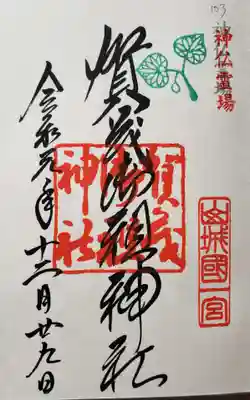 103
神仏霊場
賀茂御祖神社
賀茂御祖神社
山城國一宮
令和元年十二月廿九日